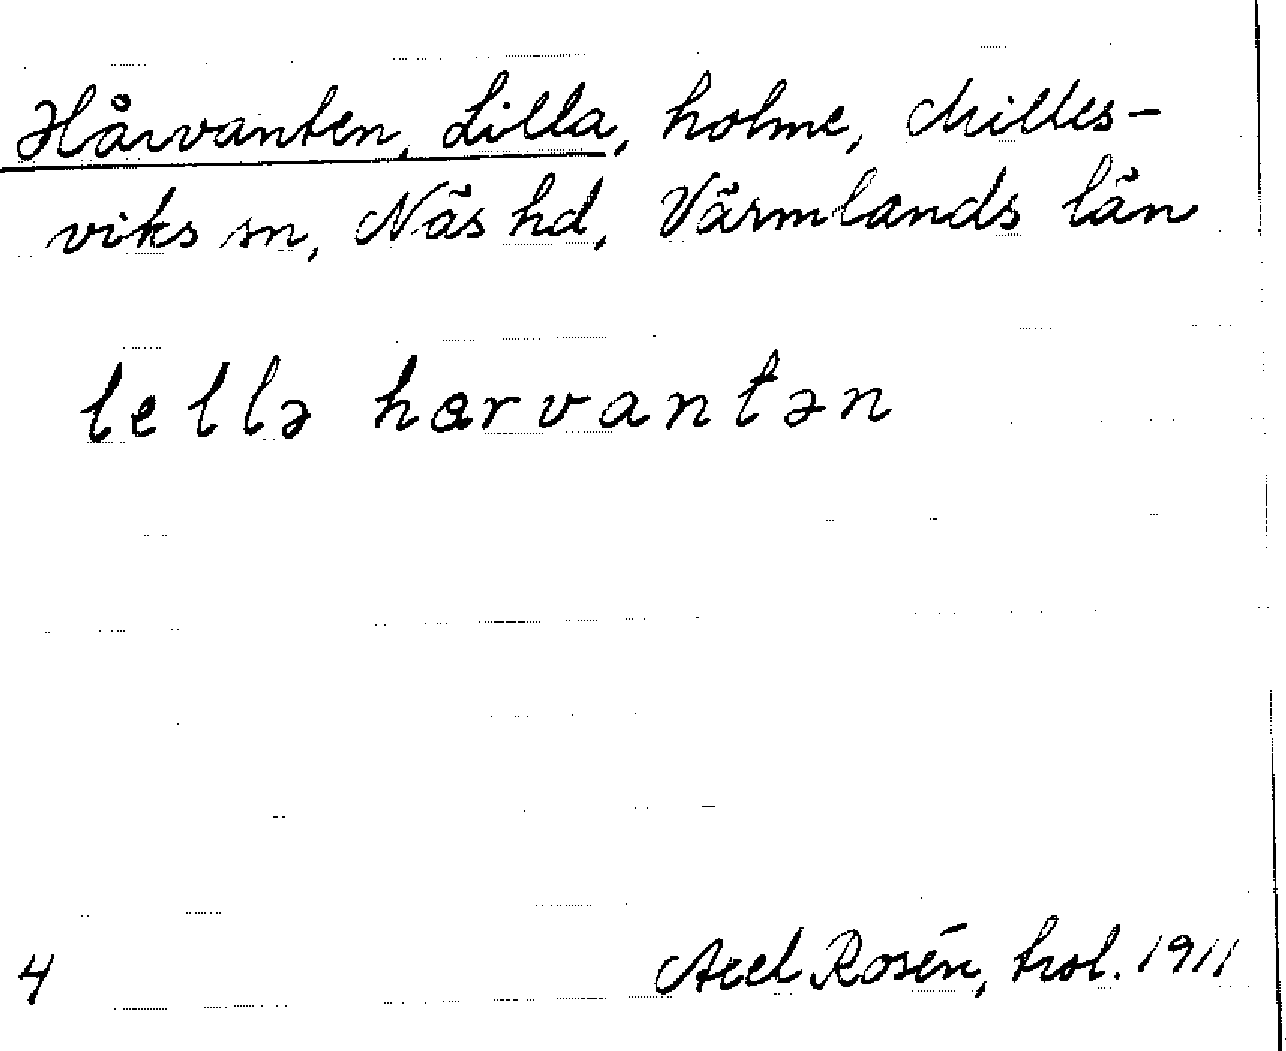 Hårvanten, Lilla, holme, Milles-
viks sn, Näs hd, Värmlands län
lellə hɑrvantən
4
Axel Rosén, kol. 1911